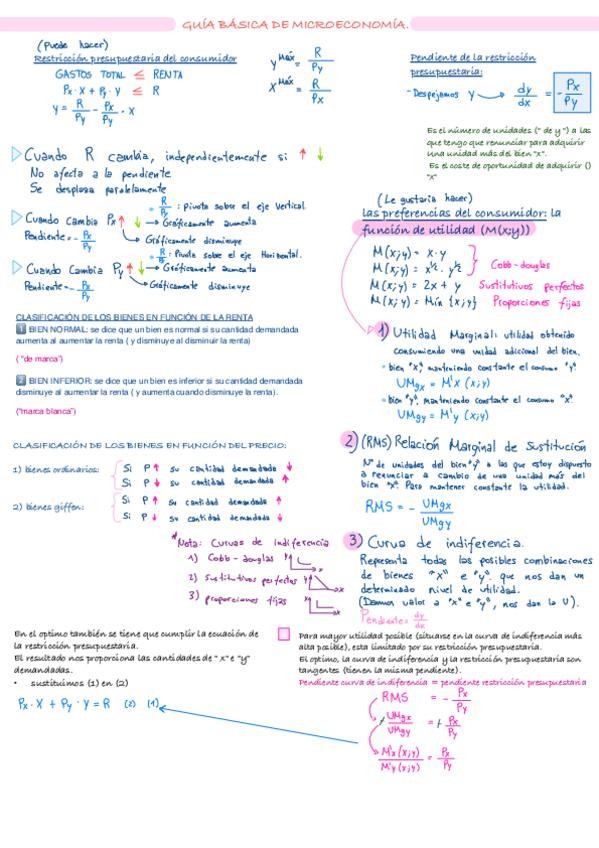 GUÍA BÁSICA DE MICROECONOMÍA.
(Puede hacer)
Restricción presupuestaria del consumidor
GASTOS TOTAL ≤ RENTA
Px · X + Py · Y ≤ R
y = R/Py - Px/Py · X
y Máx = R/Py
X Máx = R/Px
Pendiente de la restricción
presupuestaria:
- Despejamos y → dy/dx = - Px/Py
Es el número de unidades (" de y ") a las
que tengo que renunciar para adquirir
una unidad más del bien "x".
Es el coste de oportunidad de adquirir ()
"x"
Cuando R cambia, independientemente si ↑ ↓
No afecta a la pendiente
Se desplaza paralelamente
Cuando cambia Px ↑ ↓
Pendiente = - Px/Py
= R/Py : Pivota sobre el eje Vertical.
→ Gráficamente aumenta
→ Gráficamente disminuye
Cuando Cambia Py ↑ ↓
Pendiente = - Px/Py
: Pivota sobre el eje Horizontal.
→ Gráficamente aumenta
→ Gráficamente disminuye
(Le gustaría hacer)
las preferencias del consumidor: la
función de utilidad (M(x;y))
M(x;y) = x · y
M(x;y) = x½ · y½
Cobb-douglas
M(x;y) = 2x + y Sustitutivos perfectos
M(x;y) = Min {x;y} Proporciones fijas
CLASIFICACIÓN DE LOS BIENES EN FUNCIÓN DE LA RENTA
1 BIEN NORMAL: se dice que un bien es normal si su cantidad demandada
aumenta al aumentar la renta ( y disminuye al disminuir la renta)
( "de marca")
2 BIEN INFERIOR: se dice que un bien es inferior si su cantidad demandada
disminuye al aumentar la renta ( y aumenta cuando disminuye la renta).
("marca blanca")
1) Utilidad Marginal: utilidad obtenida
consumiendo una unidad adicional del bien.
• bien "X", manteniendo constante el consumo "y"
UMgx = M'x (x;y)
• bien "y", manteniendo constante el consumo "x"
UMgy = M'y (x;y)
CLASIFICACIÓN DE LOS BIENES EN FUNCIÓN DEL PRECIO:
1) bienes ordinarios:
Si P ↑ su cantidad demandada ↓
Si P ↓ su cantidad demandada ↑
2) bienes giffen:
Si P ↑ su cantidad demandada ↑
Si P ↓ su cantidad demandada ↓
2) (RMS) Relación Marginal de Sustitución
Nº de unidades del bien "y" a las que estoy dispuesto
a renunciar a cambio de una unidad más del
bien "x". Para mantener constante la utilidad.
RMS = - UMgx/UMgy
*Nota: Curvas de indiferencia
1) Cobb-douglas y x
2) Sustitutivos perfectos y x
3) proporciones fijas y x
3) Curva de indiferencia.
Representa todas las posibles combinaciones
de bienes "x" e "y" que nos dan un
determinado nivel de utilidad.
(Damos valor a "x" e "y", nos dan la U).
Pendiente = dy/dx
En el optimo también se tiene que cumplir la ecuación de
la restricción presupuestaria.
El resultado nos proporciona las cantidades de " X" e "y"
demandadas.
• sustituimos (1) en (2)
Px · X + Py · Y = R (2) (1)
Para mayor utilidad posible (situarse en la curva de indiferencia más
alta posible), esta limitado por su restricción presupuestaria.
El optimo, la curva de indiferencia y la restricción presupuestaria son
tangentes (tienen la misma pendiente).
Pendiente curva de indiferencia = pendiente restricción presupuestaria
RMS = - Px/Py
+ UMgx/UMgy = + Px/Py
M'x(x;y)/M'y(x;y) = Px/Py